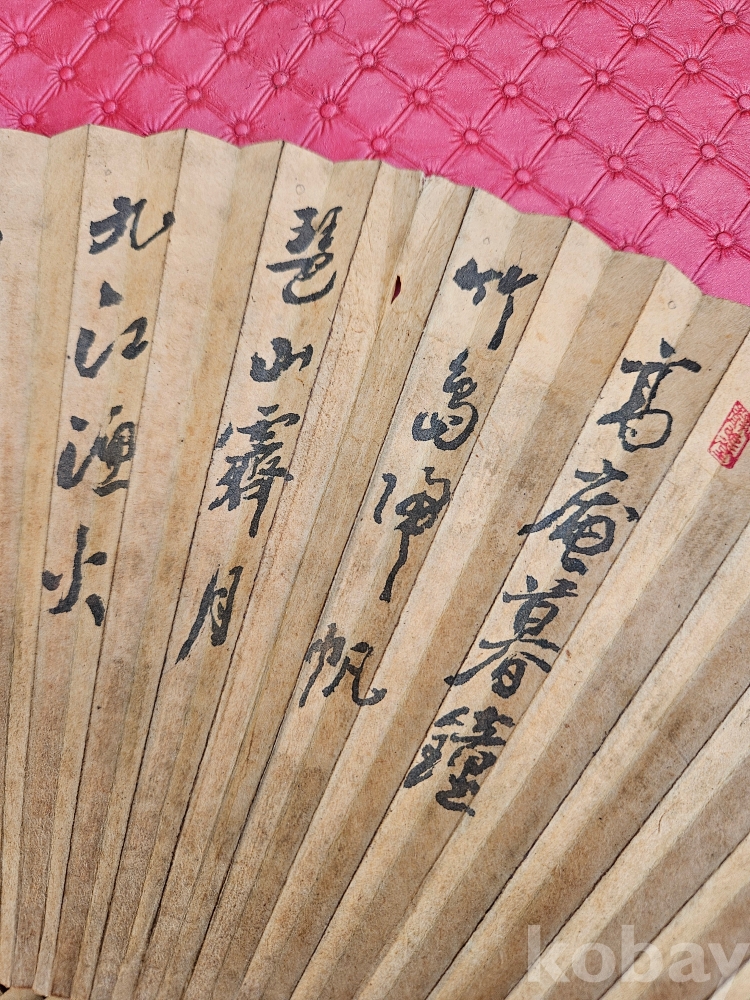 高庵暮鐘
竹島歸帆
琶山霽月
九江漁火
kobay